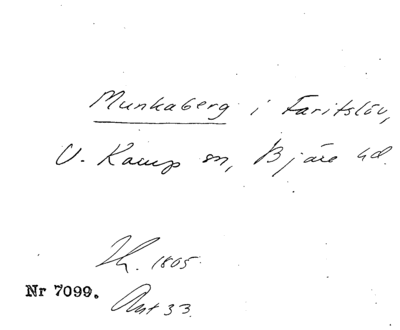 Munkaberg i Faritslöv,
V. Karup sn, Bjäre hd.
Th. 1805.
Nr 7099.
Ant 33.